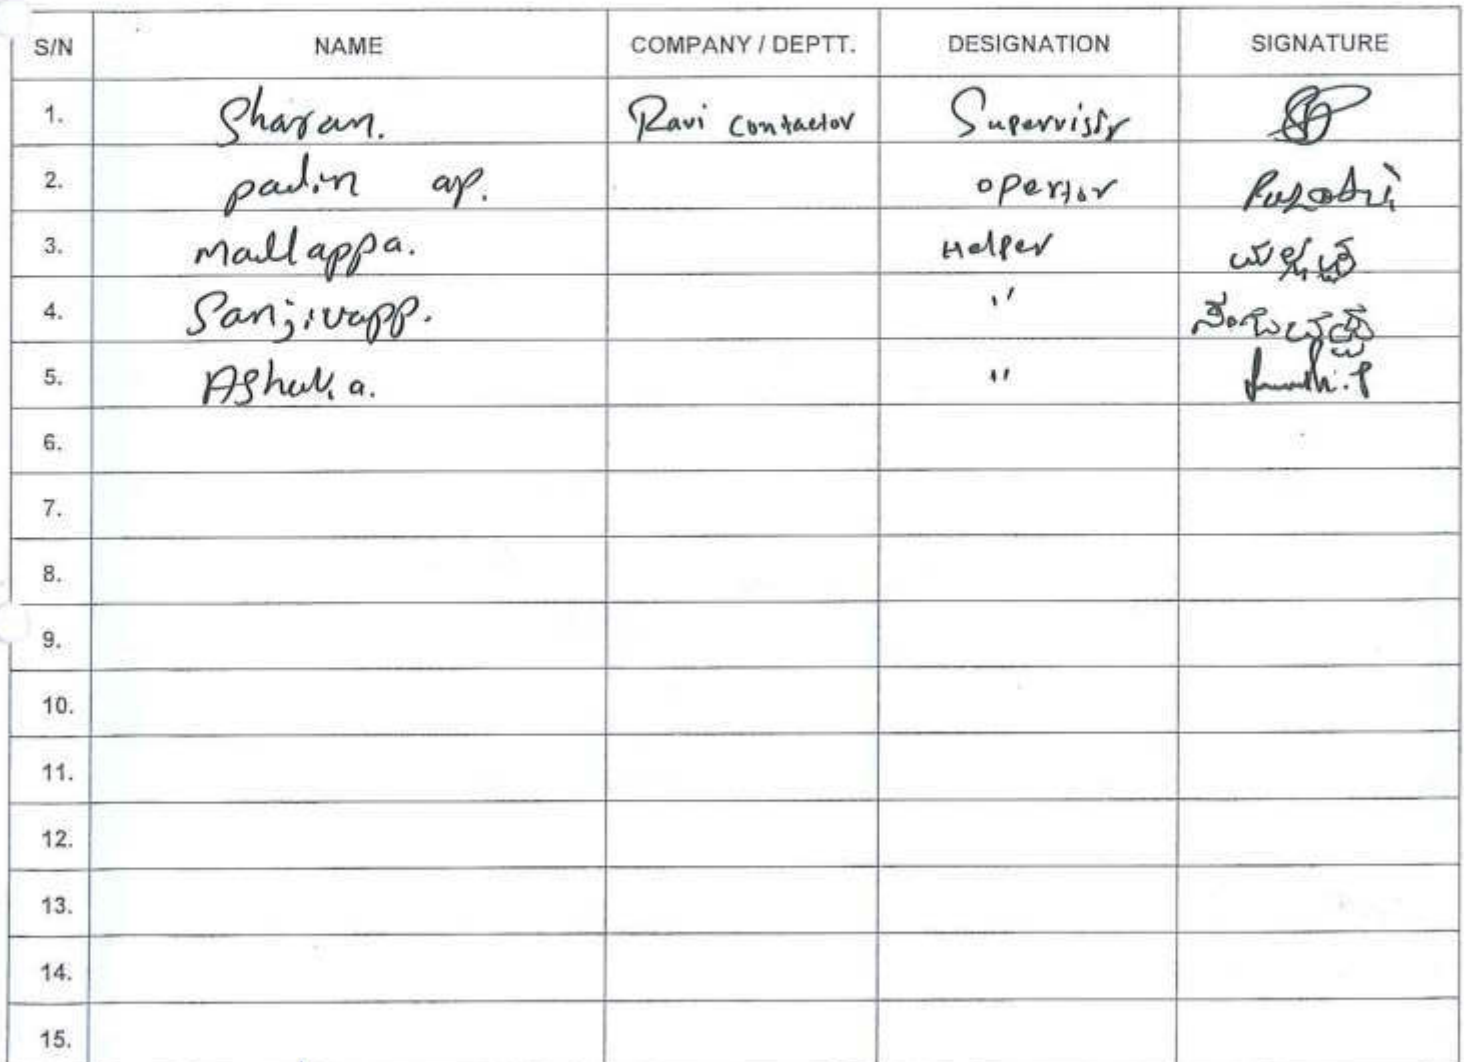 S/N NAME COMPANY / DEPTT. DESIGNATION SIGNATURE
1. Sharan. Ravi Contactor Supervisir
2. ap. opertor
3. Mallappa. Helper
4. Sanjivapp. "
5. "
6.
7.
8.
9.
10.
11.
12.
13.
14.
15.